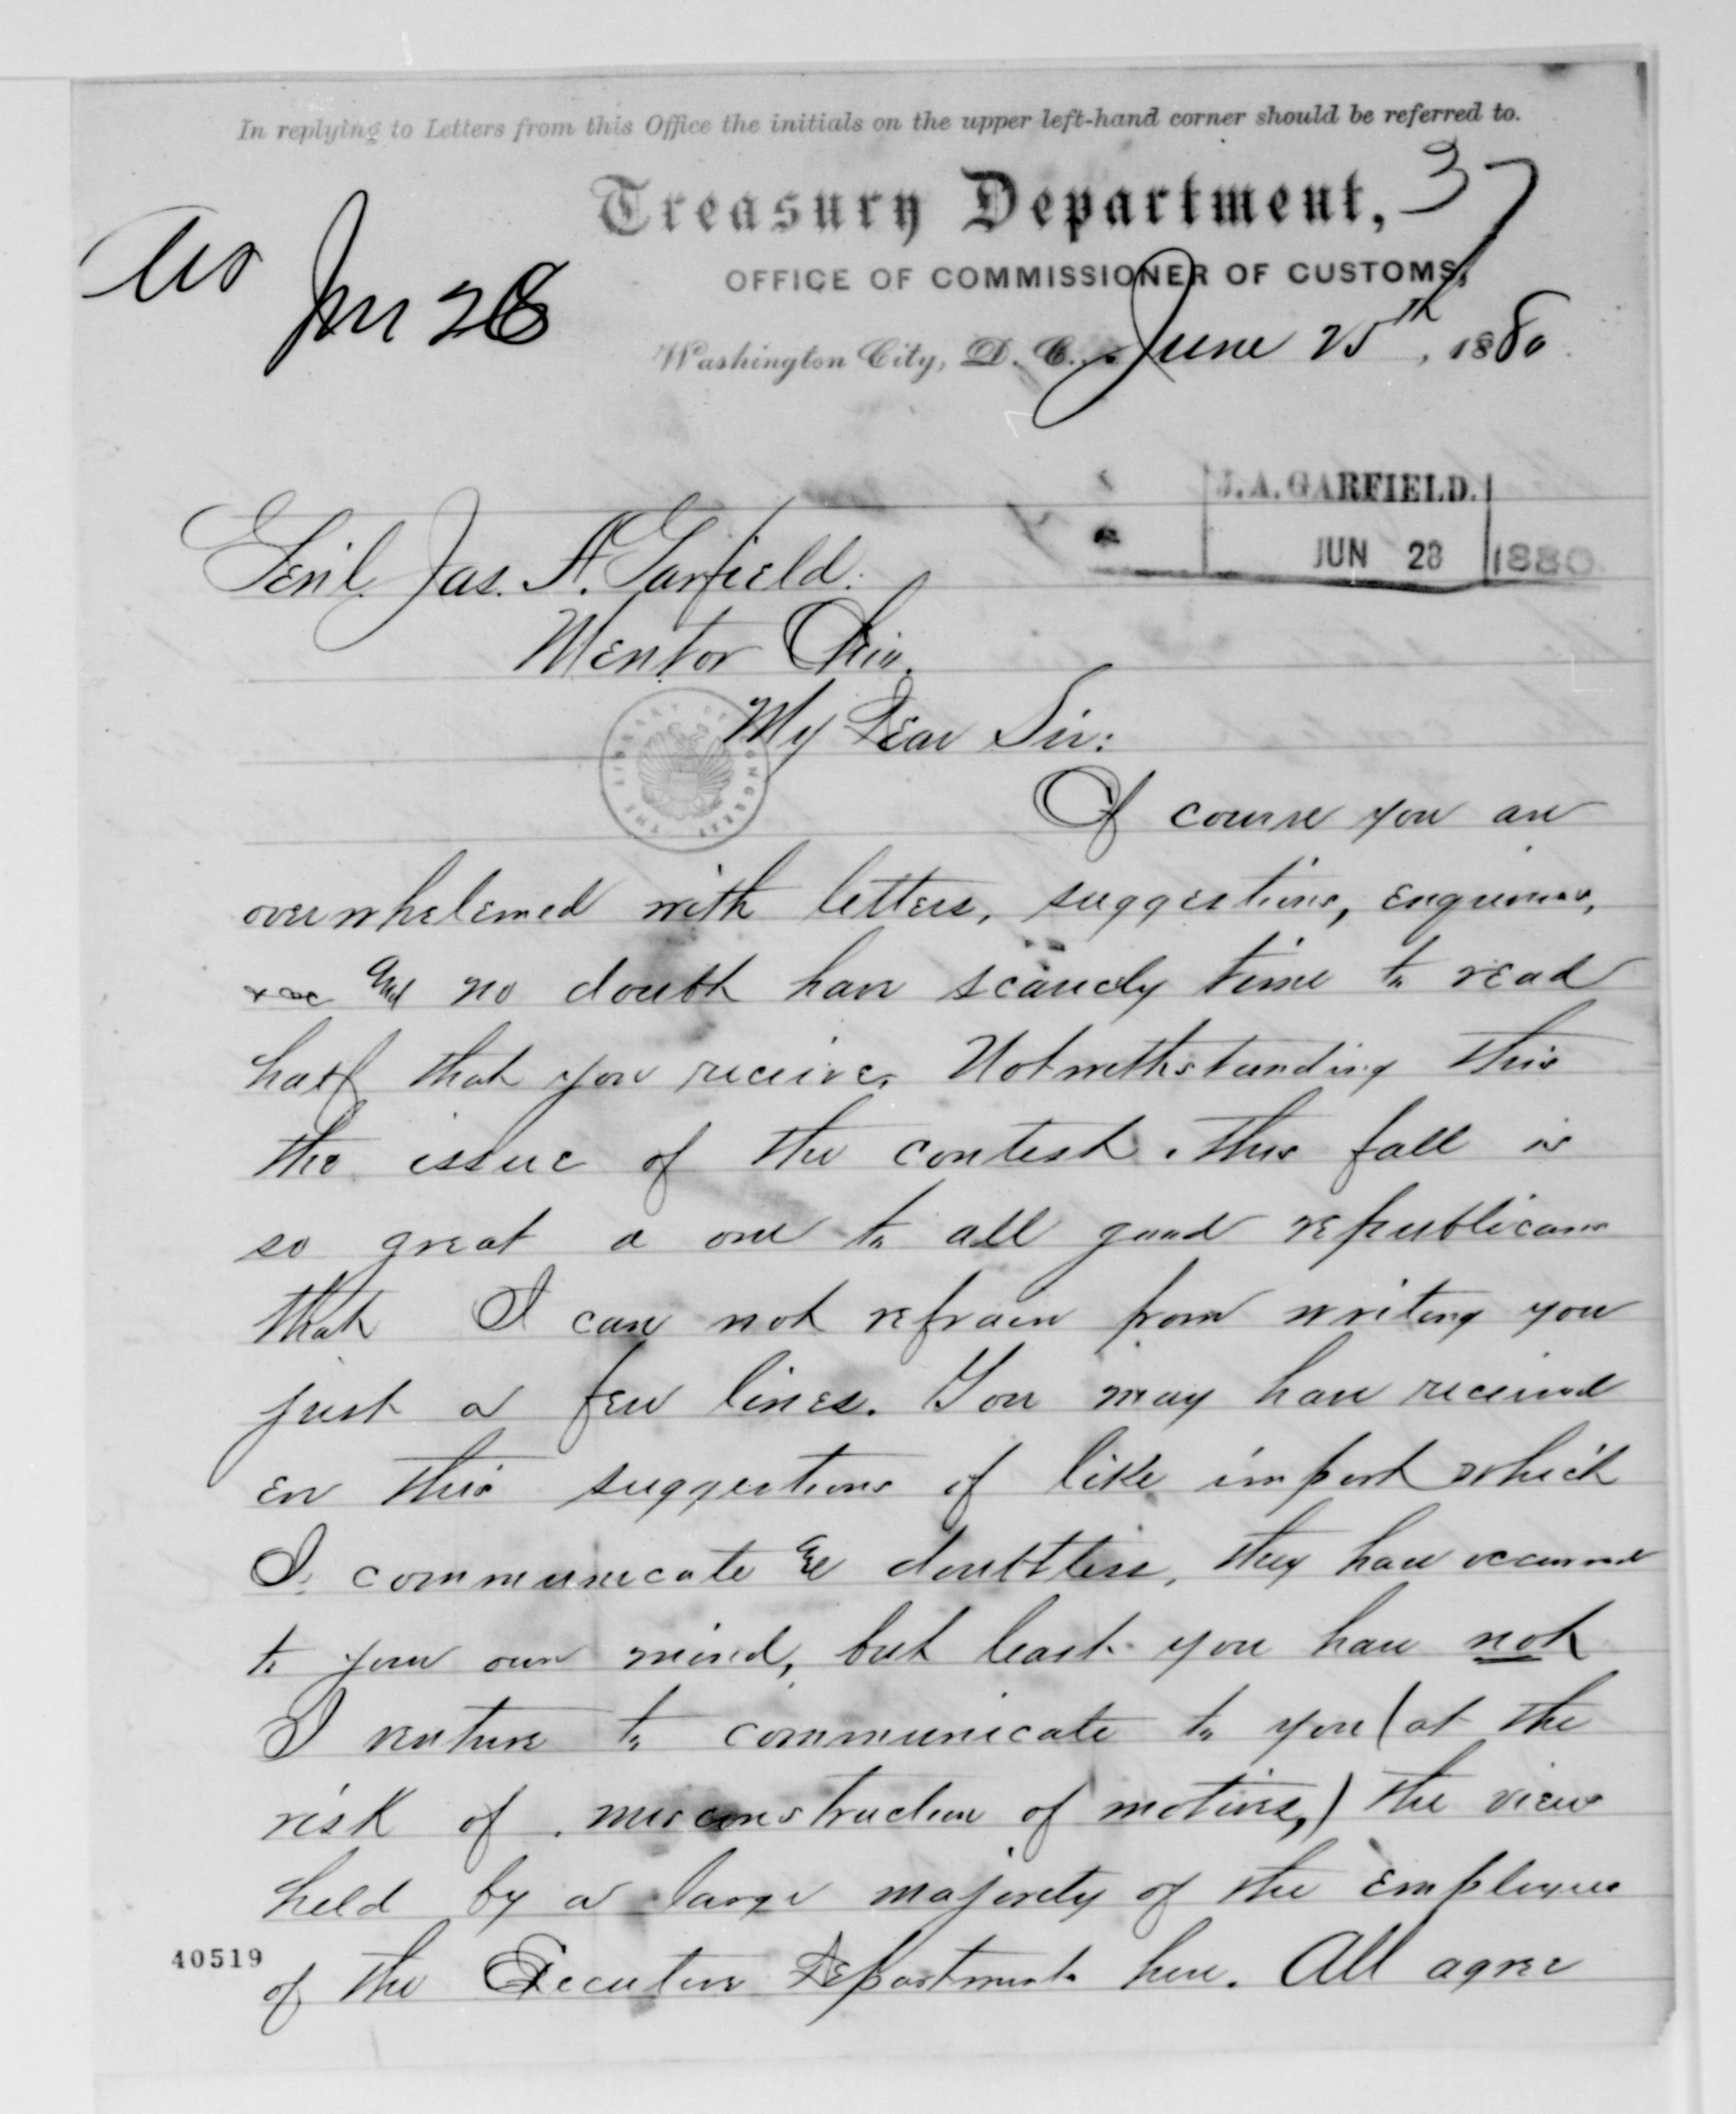 In replying to Letters from this Office the initials on the upper left-hand corner should be referred to.
37
Treasury Department,
OFFICE OF COMMISSIONER OF CUSTOMS,
Jun 28
Washington City, D. C., June 25th, 1880
J. A. GARFIELD.
JUN 28 1880
Genl. Jas. A. Garfield.
Mentor Ohio.
My Dear Sir:
THE LIBRARY OF CONGRESS
Of course you are
overwhelemed with letters, suggestions, enquiries,
&c &c and no doubt have scarcely time to read
half that you receive. Notwithstanding this
the issue of the contest this fall is
so great a one to all good republicans
that I can not refrain from writing you
just a few lines. You may have received
er this suggestions of like import which
I communicate & doubtless, they have occurred
to your own mind, but least you have not
I venture to communicate to you (at the
risk of misconstruction of motives,) the views
held by a large majority of the employees
of the Executive Departments here. All agree
40519